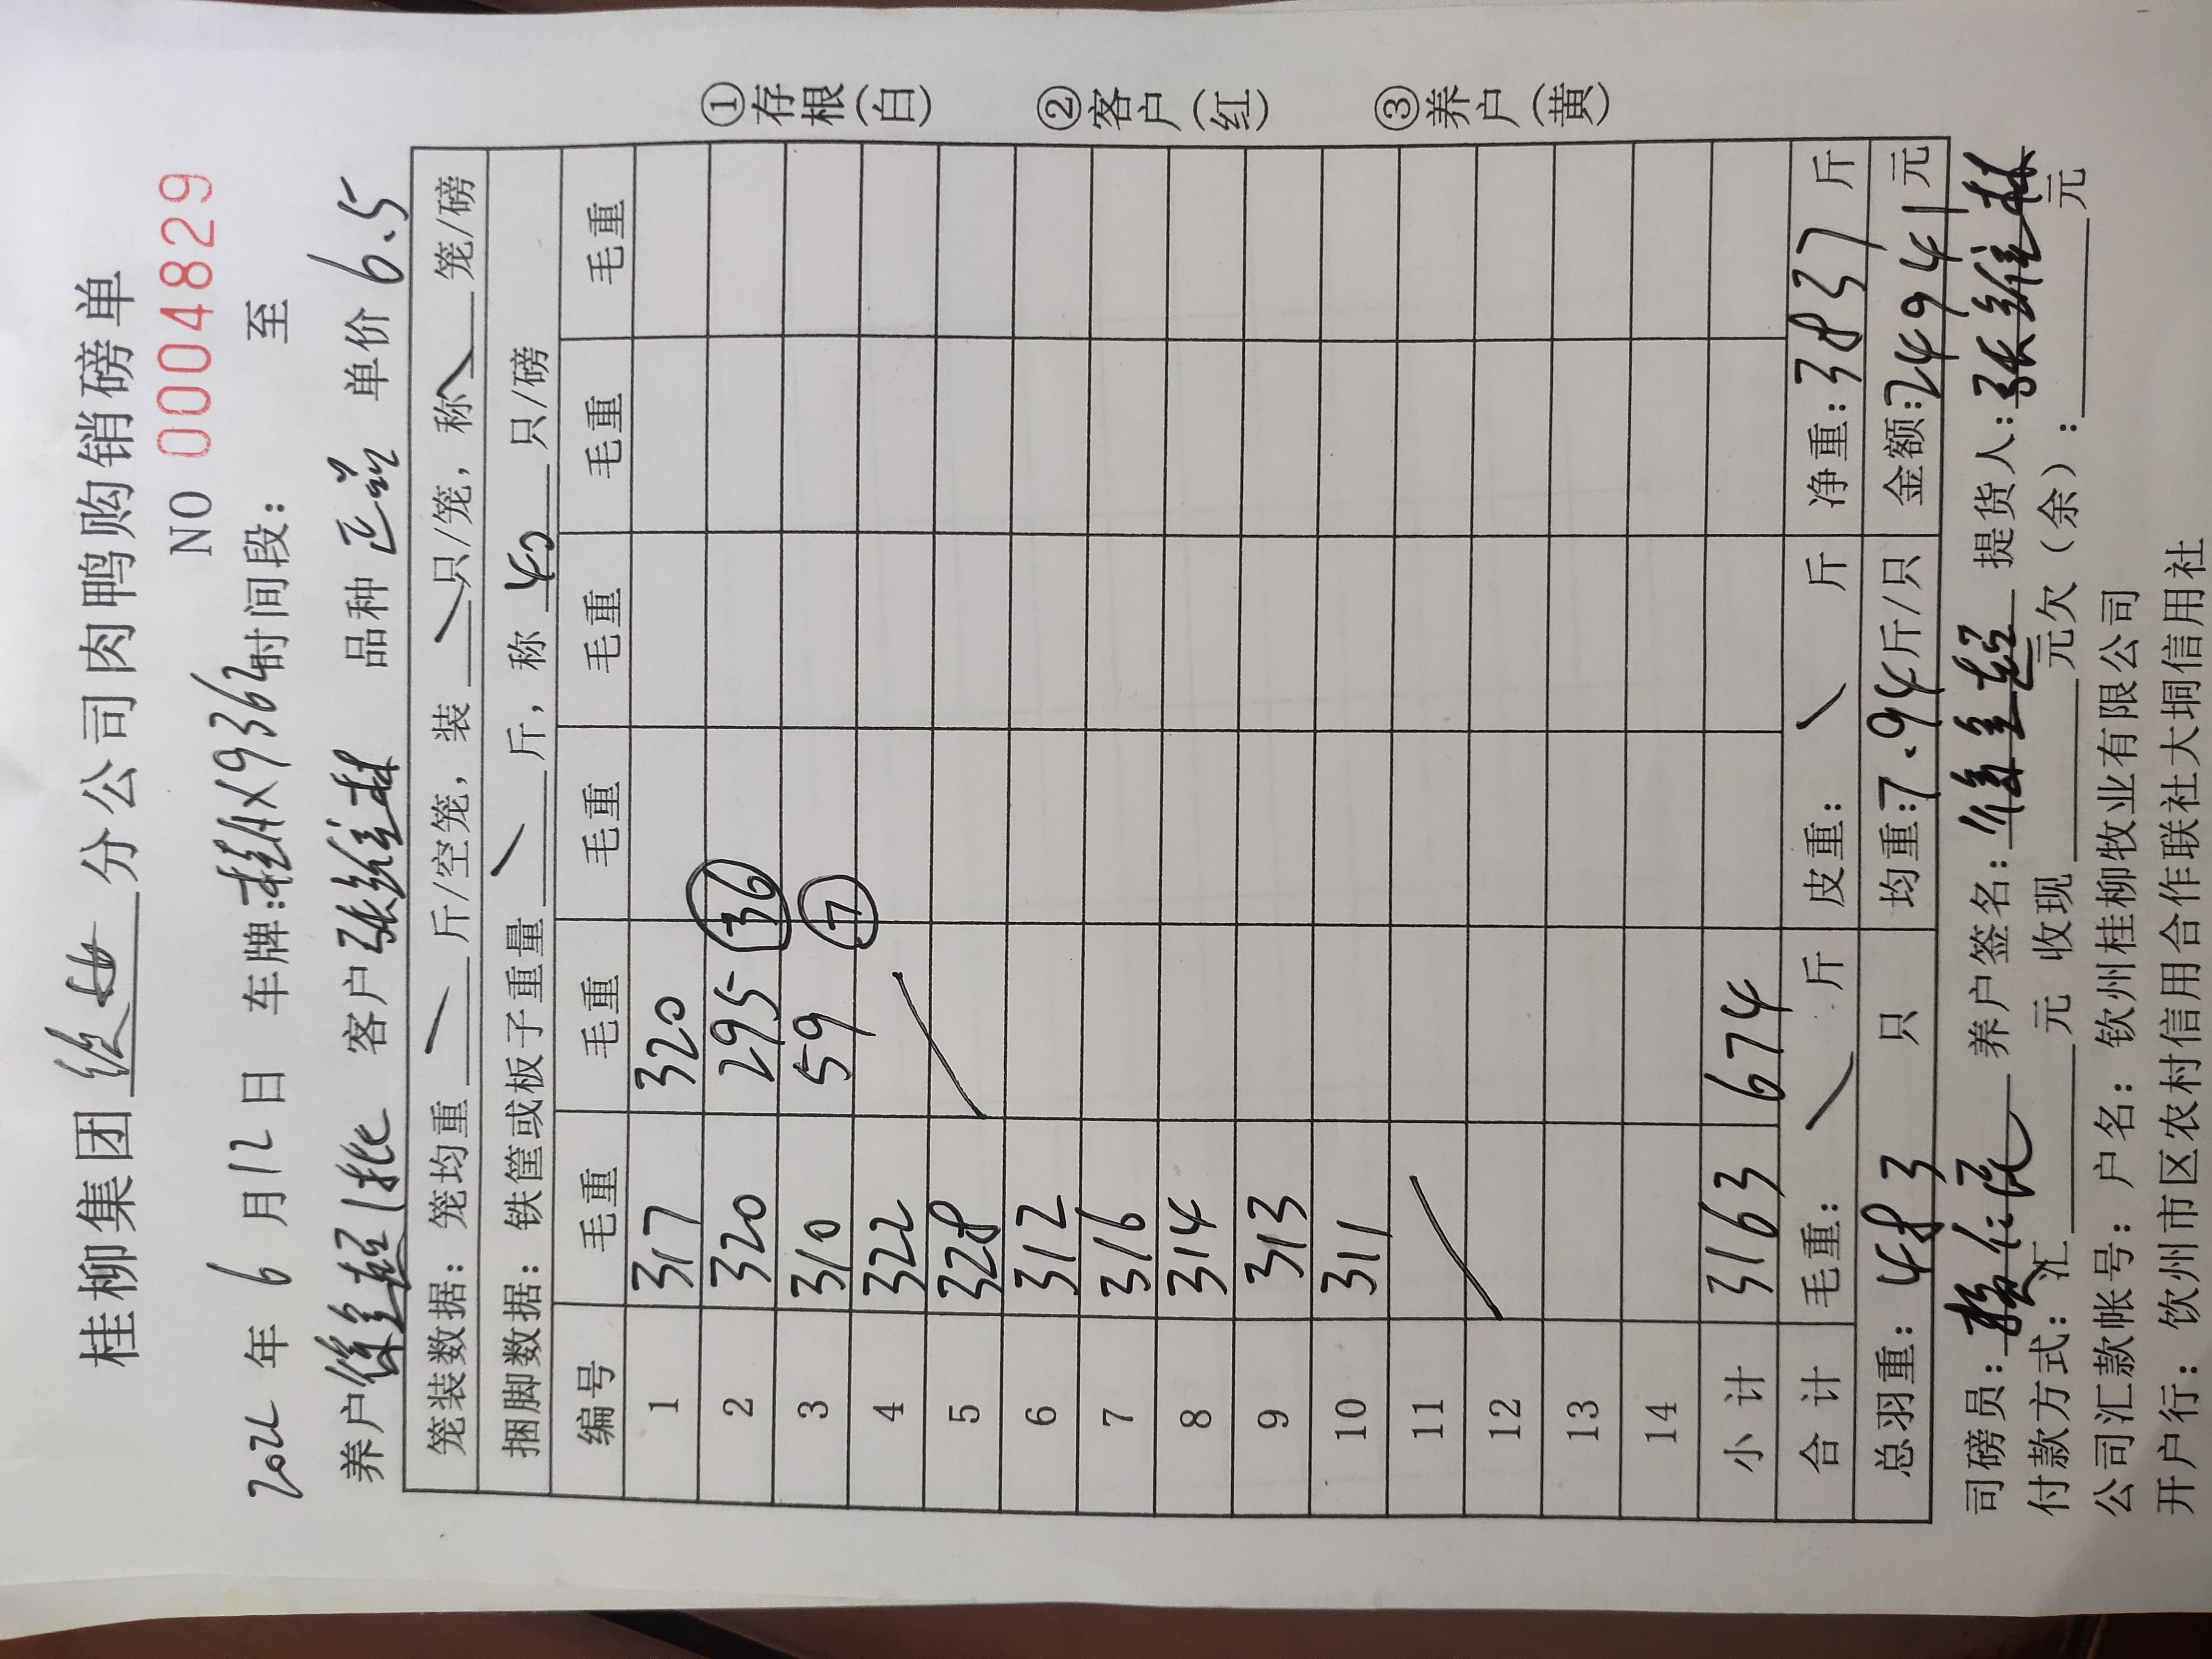 桂柳集团 分公司肉鸭购销磅单
NO 0004829
年 6 月 12 日 车牌:桂AX9362 时间段: 至
养户 1批 客户 张维林 品种 单价 6.5
笼装数据: 笼均重 / 斤/空笼, 装 / 只/笼, 称 / 笼/磅
捆脚数据: 铁筐或板子重量 / 斤, 称 40 只/磅
编号 毛重 毛重 毛重 毛重 毛重 毛重
1 317 320
2 320 295 36
3 310 59 7
4 322
5 328
6 312
7 316
8 314
9 313
10 311
11
12
13
14
小 计 3163 674
合 计 毛重: / 斤 皮重: / 斤 净重: 3837 斤
总羽重: 483 只 均重: 7.94 斤/只 金额: 24941 元
司磅员: 养户签名: 提货人: 张维林
付款方式: 汇 元 收现 元欠(余): 元
公司汇款帐号: 户名: 钦州桂柳牧业有限公司
开户行: 钦州市区农村信用合作联社大垌信用社
①存根(白) ②客户(红) ③养户(黄)